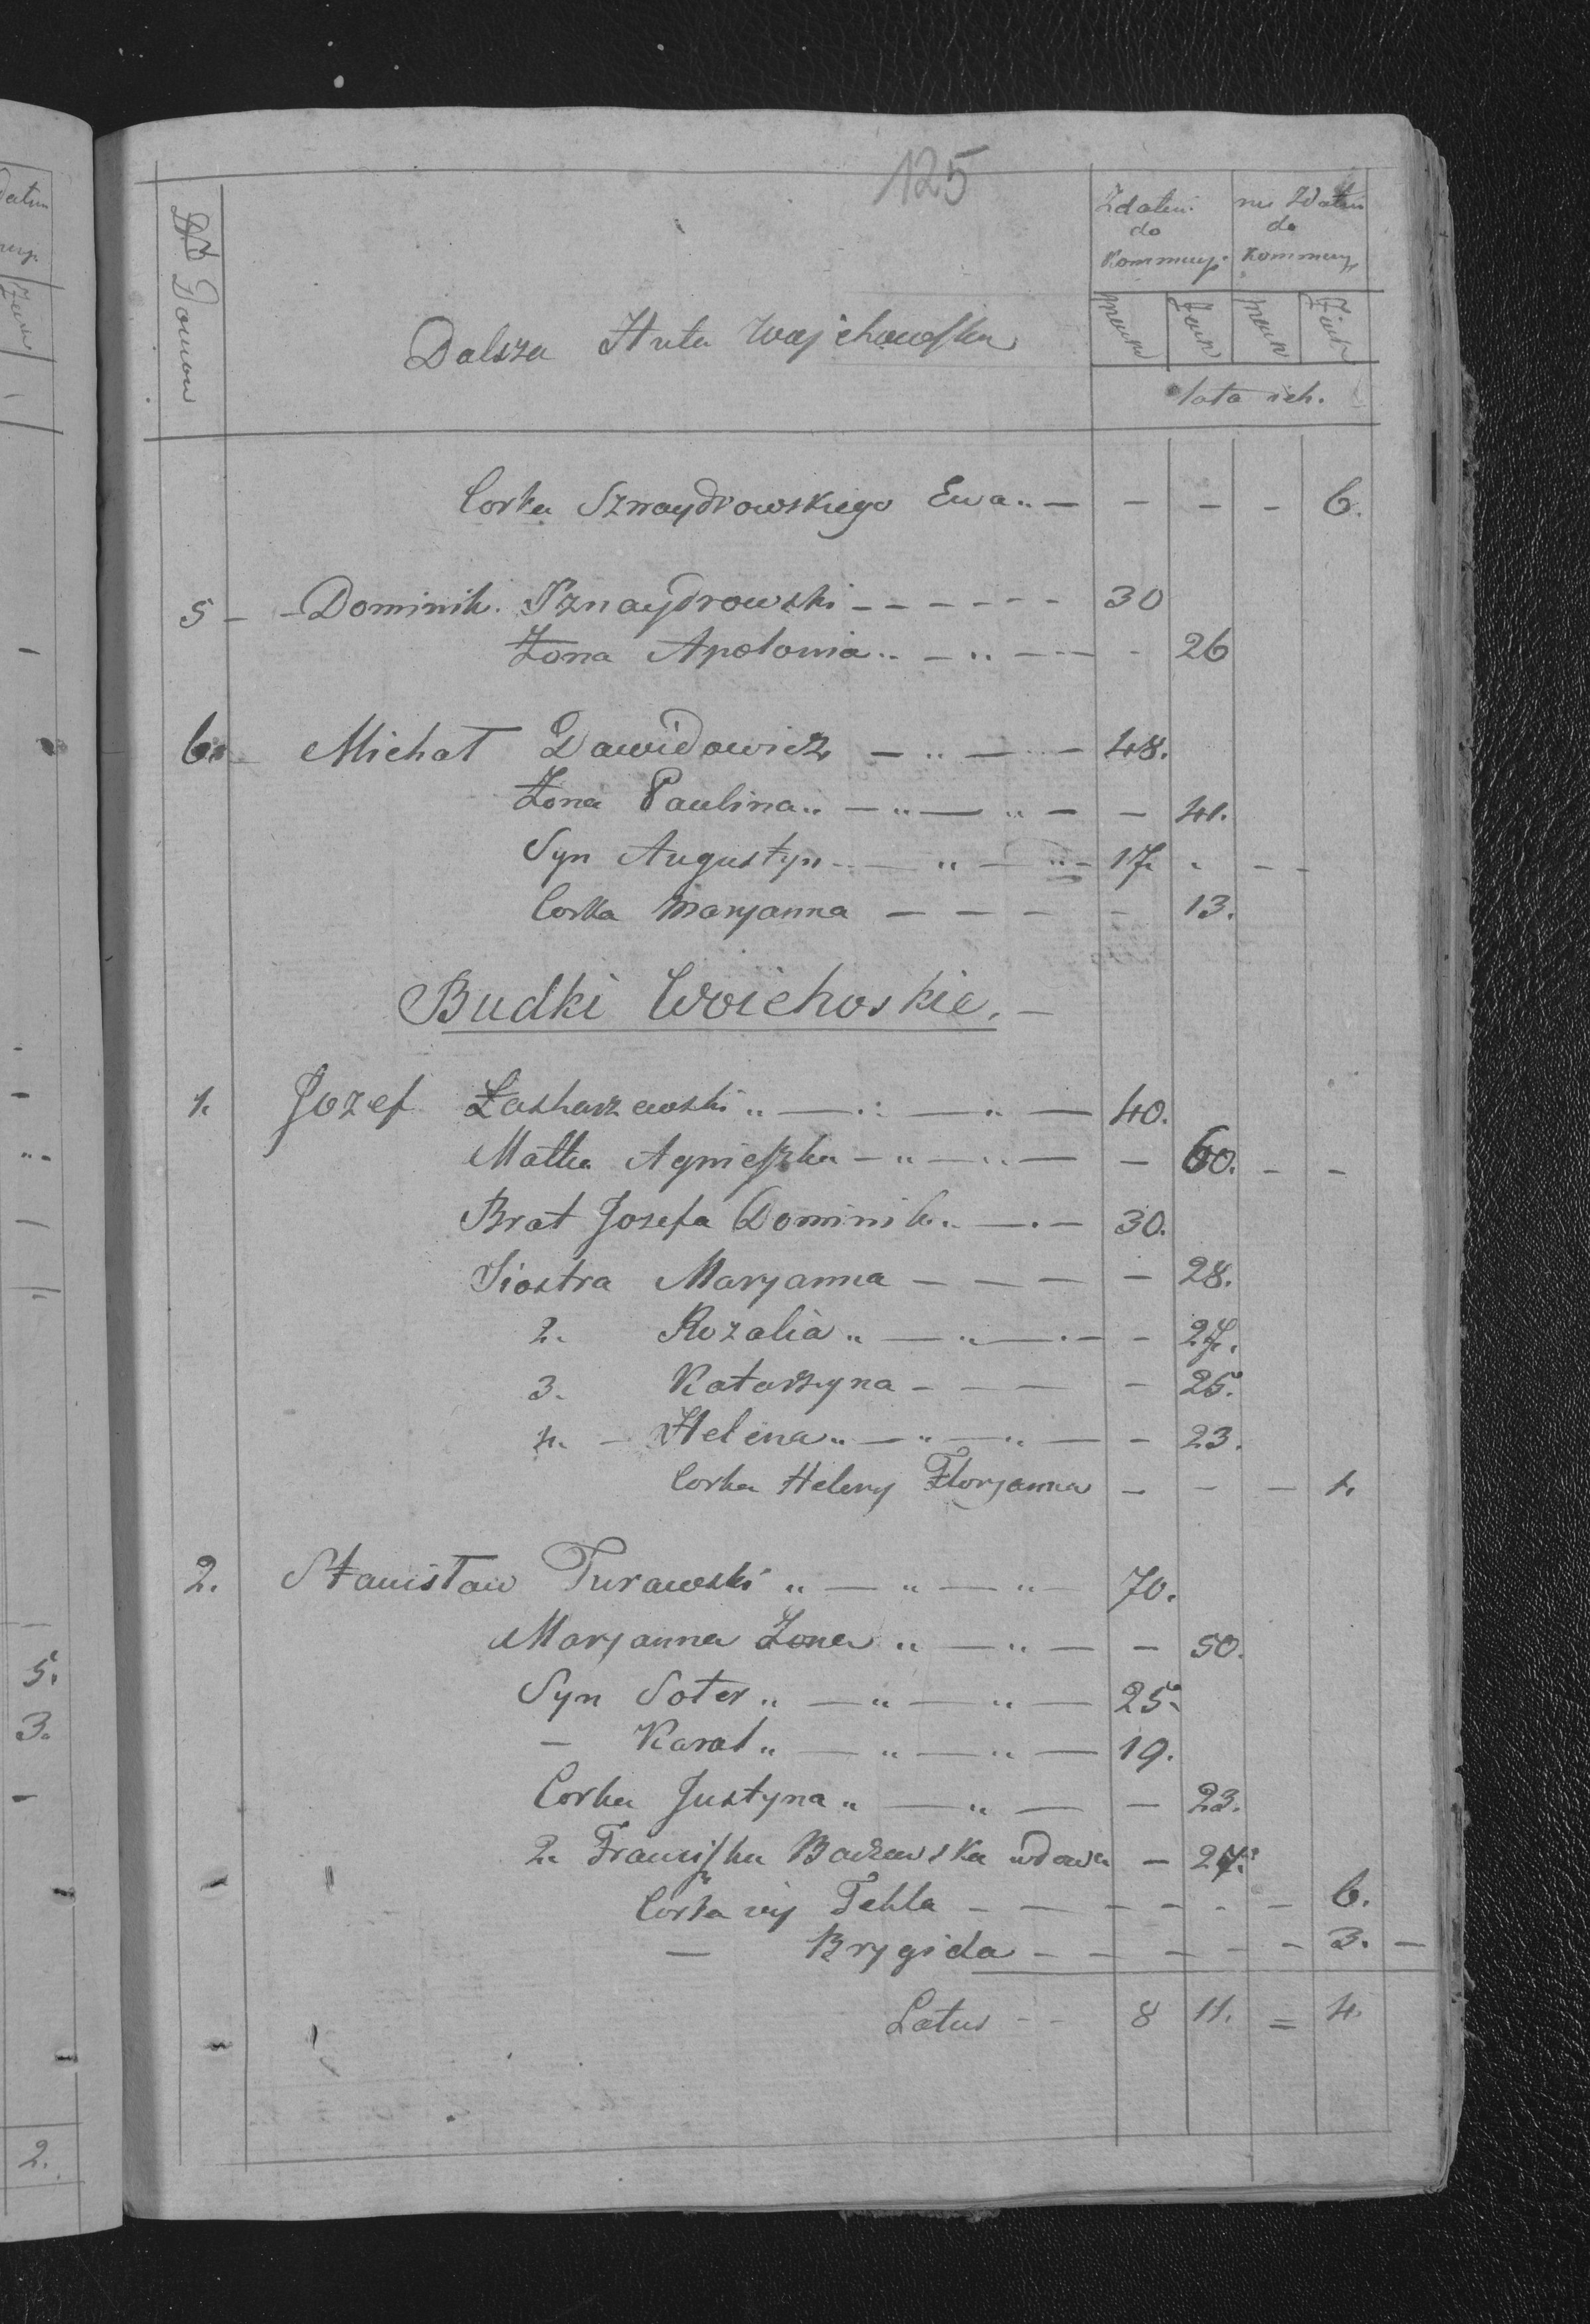 125
№ Domow
Dalsza Huta Wojchowska
Zdatni do Kommuni
nie Zdatni do Kommuni
męsk żeńs męsk żeńs
lata ich.
Corka Sznaydrowskiego Ewa „ — — — — 6.
5 — Dominik. Sznaydrowski — — — — — — 30
Żona Apolonia „ — „ — — - 26
6. Michał Dawidowicz — „ — — 48.
Żona Paulina „ — „ — „ — — 41.
Syn Augustyn — — „ — „ — 17. - - -
Corka Maryanna — — — — — 13.
Budki Woichoskie. —
1. Jozef Łaskarzewski „ — „ — „ — 40.
Matka Agnieszka — „ — „ — — 60. - -
Brat Josefa Dominik. — . — 30.
Siostra Maryanna — — — — 28.
2. Rozalia „ — „ — . — - 27.
3. Katarzyna — — — — 25.
4. — Helena „ — „ — „ — — 23.
Corka Heleny Floryanna — — — 1.
2. Stanisław Turawski „ — „ — „ — 70.
Maryanna Żona „ — „ — — 50.
Syn Soter „ — „ — „ — 25.
— Karol „ — „ — „ — 19.
Corka Justyna „ — „ — — 23.
2. Franciszka wdowa — 27.
Corka iey Tekla — — — — - — 6.
— Brygida — — — — — 3. —
Latus - - 8 11. = 4.